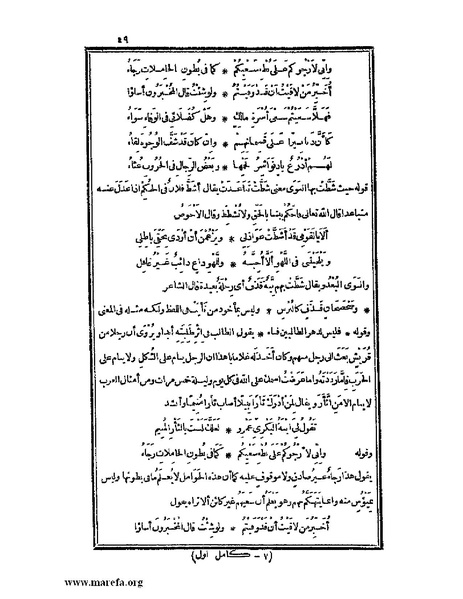 ٤٩
وإنى لأرجوكم على بُطء سعيكم * كما فى بُطون الحاملات رجاءُ
أُخبِّرُ من لاقيتُ أن قد وفيتُم * ولو شئتُ قال المُخبَرون أساؤا
فهلّا سعيتم سَعْىَ أُسرة مالك * وهل كُفلائى فى الوفاء سواء
كأنّ دنانيرا على قسماتهم * وإن كان قد شفّ الوجوه لقاءُ
لهم أذرُعٌ بادٍ نواشر لحمها * وبعضُ الرجال فى الحروب غُثاءُ
قوله حيث شطّت بها النوى معنى شطّت تباعدت يقال أشط فلان فى الحكم اذا عدل عنه
متباعدا قال الله تعالى فاحكم بيننا بالحق ولا تُشطِط وقال الأحوص
ألا يا لقومى قد أشطّت عواذلى * ويزعُمن أن أودى بحقّى باطلى
ويَلحَيْنَنى فى اللهو ألّا أُحبّه * وللّهو داعٍ دائبٌ غيرُ غافل
والنوى البُعد ويقال شطّت بهم نيّة قَذَفٌ أى رحلة بعيدة قال الشاعر
* وصَحصَحان قَذَفٍ كالتُّرس * وليس بمأخوذ من نأيت فى اللفظ ولكنه مثله فى المعنى
وقوله * فليس لدهر الطالبين فناء * يقول الطالب فى إثر طَلِبَتِه أبدا ويُروى أن رجلا من
قُريش بعث الى رجل منهم وكان أخذ له غلاما يا هذا ان الرجل ينام على الثُّكل ولا ينام على
الحَرَب فإمّا رددته وإما عرضتُ اسمك على الله فى كل يوم وليلة خمس مرات ومن أمثال العرب
لا ينام إلا من أثأر ويقال لمن أدرك ثارا نبيلا أصاب ثأرا مُنيما وأنشد
تقول لى ابنة البكرىّ عمرو * لعلّك لست بالثأر المُنيم
وقوله وإنى لأرجوكم على بُطء سعيكم * كما فى بطون الحاملات رجاءُ
يقول هذا رجاء غير صادق ولا موقوف عليه كما أن هذه الحوامل لا يُعلم ما فى بطونها وليس
بميؤس منه وانما يتهكّم بهم وهو يعلم أن سعيهم غير كائن ألا تراه يقول
أُخبِّرُ من لاقيت أن قد وفيتم * ولو شئتُ قال المخبَرون أساؤا
(٧ - كامل اول)
www.marefa.org